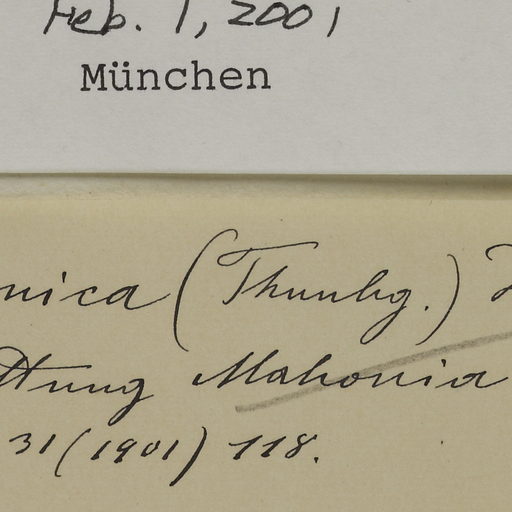 Feb. 1, 2001
München
nica (Thunbg.)
ttung Mahonia
31 (1901) 118.